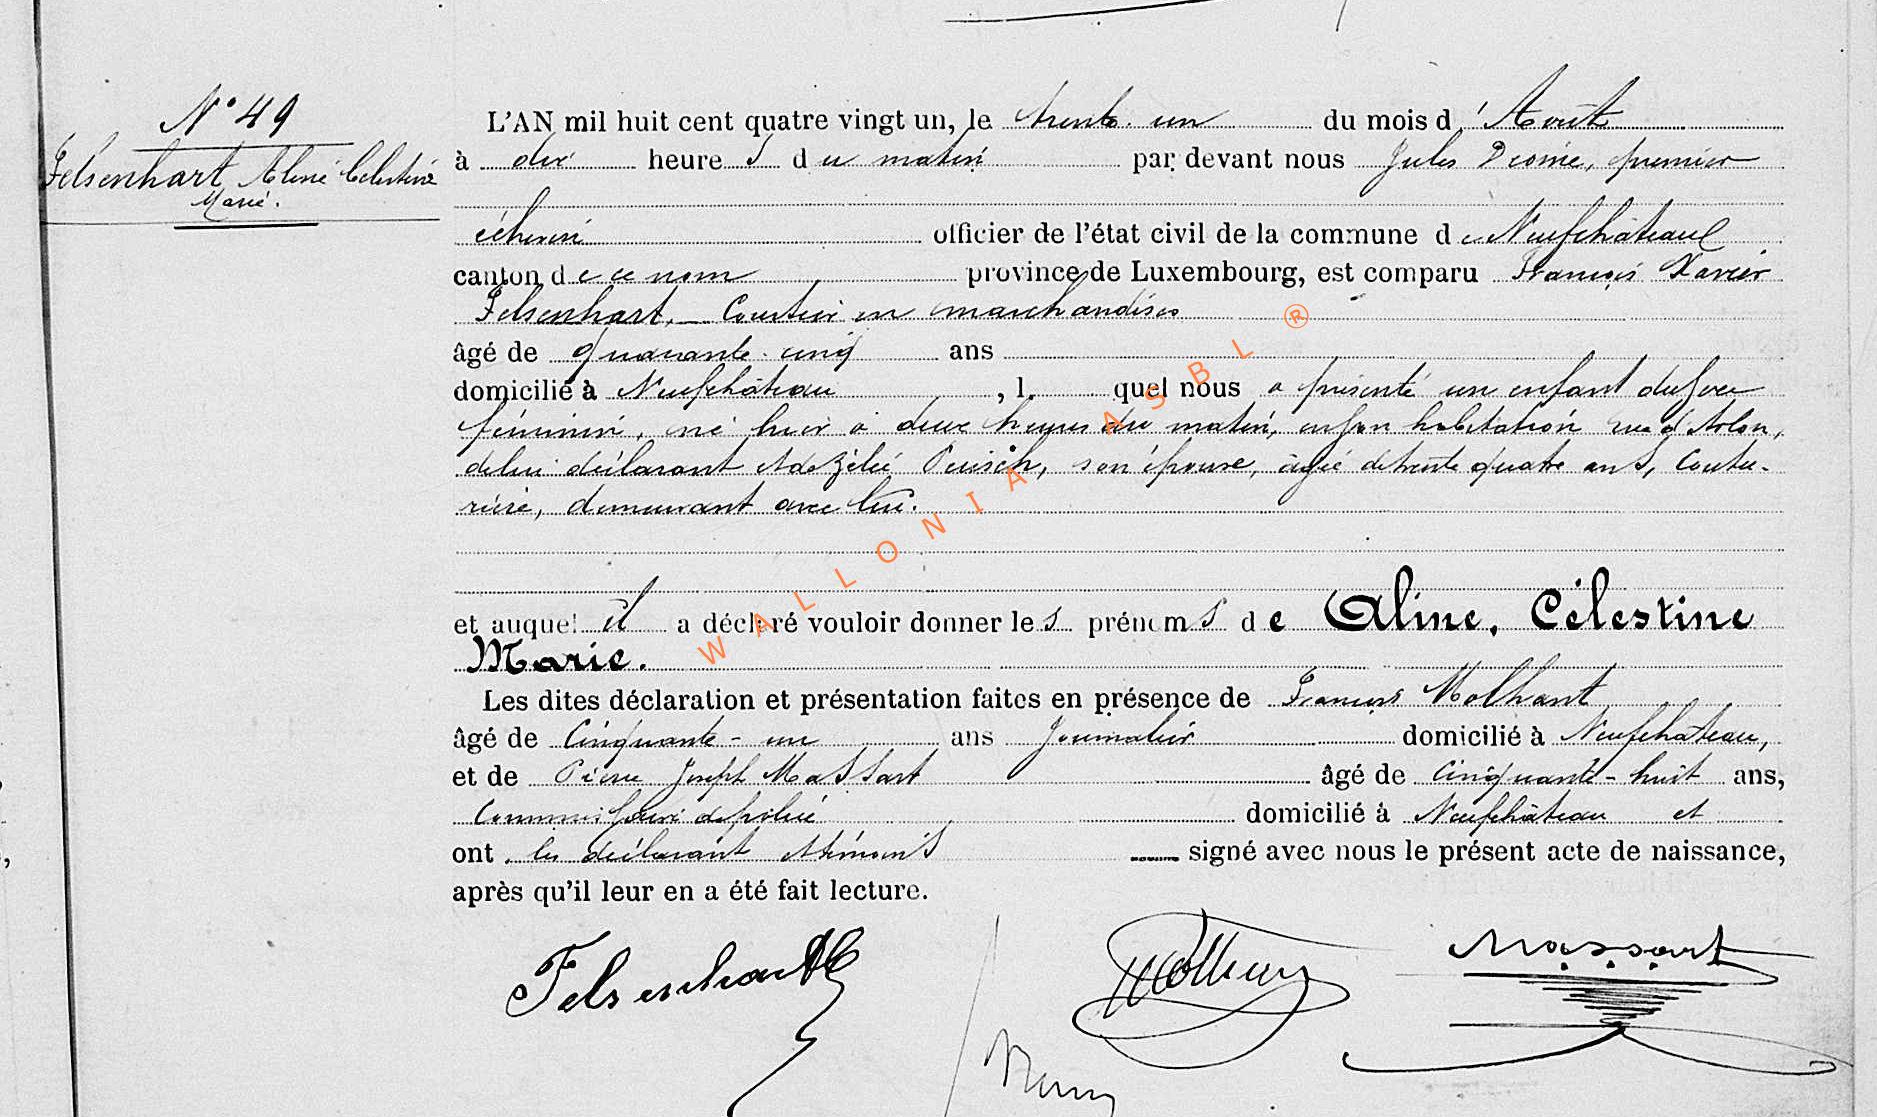 N° 49
Felsenhart, Aline Célestine
Marie.
L'AN mil huit cent quatre vingt un, le trente-un du mois d'Août
à dix heures du matin par devant nous Jules Diome, premier
échevin officier de l'état civil de la commune de Neufchâteau
canton de ce nom province de Luxembourg, est comparu François Xavier
Felsenhart, Courtier en marchandises
âgé de quarante-cinq ans
domicilié à Neufchâteau, l quel nous a présenté un enfant du sexe
féminin, né hier à deux heures du matin, en son habitation rue d'Arlon,
de lui déclarant et de Zélie son épouse, âgée de trente quatre ans, coutu-
rière, demeurant avec lui.
et auquel il a déclaré vouloir donner les prénoms de Aline, Célestine
Marie.
Les dites déclaration et présentation faites en présence de François Molhant
âgé de Cinquante-un ans Journalier domicilié à Neufchâteau,
et de Pierre Joseph Massart âgé de Cinquante-huit ans,
Commissaire de police domicilié à Neufchâteau et
ont les déclarant et témoins signé avec nous le présent acte de naissance,
après qu'il leur en a été fait lecture.
Felsenhart
Molhant
Massart
WALLONIA ASBL ®